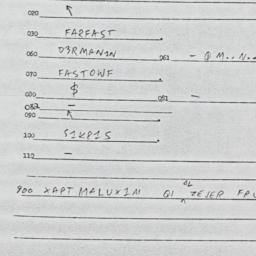 020
030 FARFAST
060 D3RMAN1N 061 - Q M..N..
070 FASTOWF
080 $ 081 -
082 -
090
100 S1KP1S
110 -
900 XAPT MALUX1M Q1 ZEJER